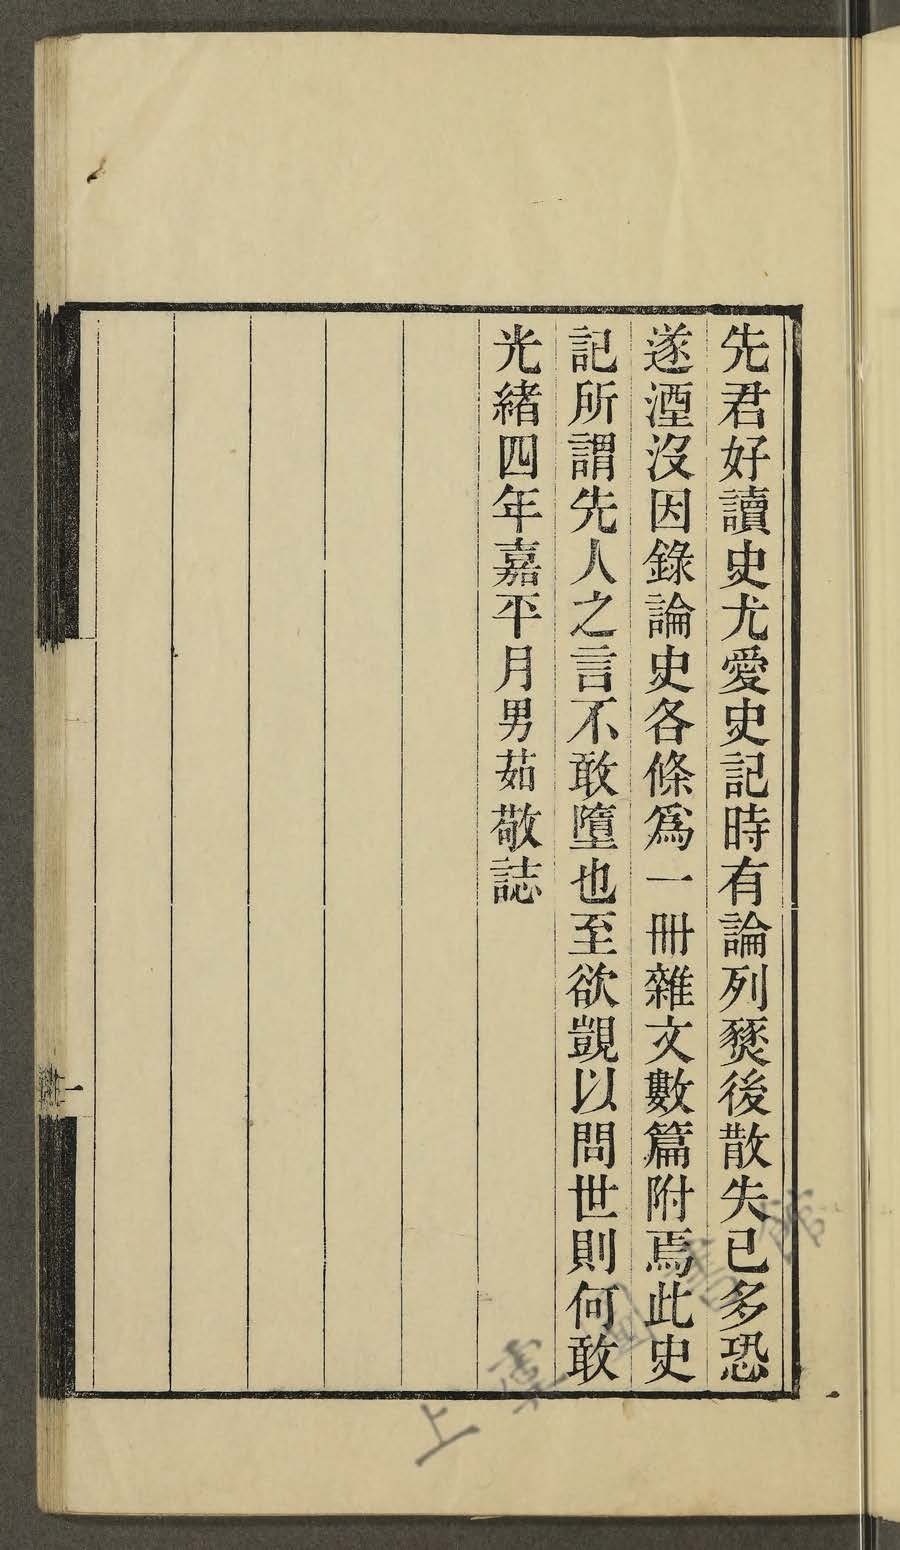 先君好讀史尤愛史記時有論列燹後散失已多恐
遂湮沒因錄論史各條爲一冊雜文數篇附焉此史
記所謂先人之言不敢墮也至欲覬以問世則何敢
光緒四年嘉平月男茹敬誌
一
上虞圖書館